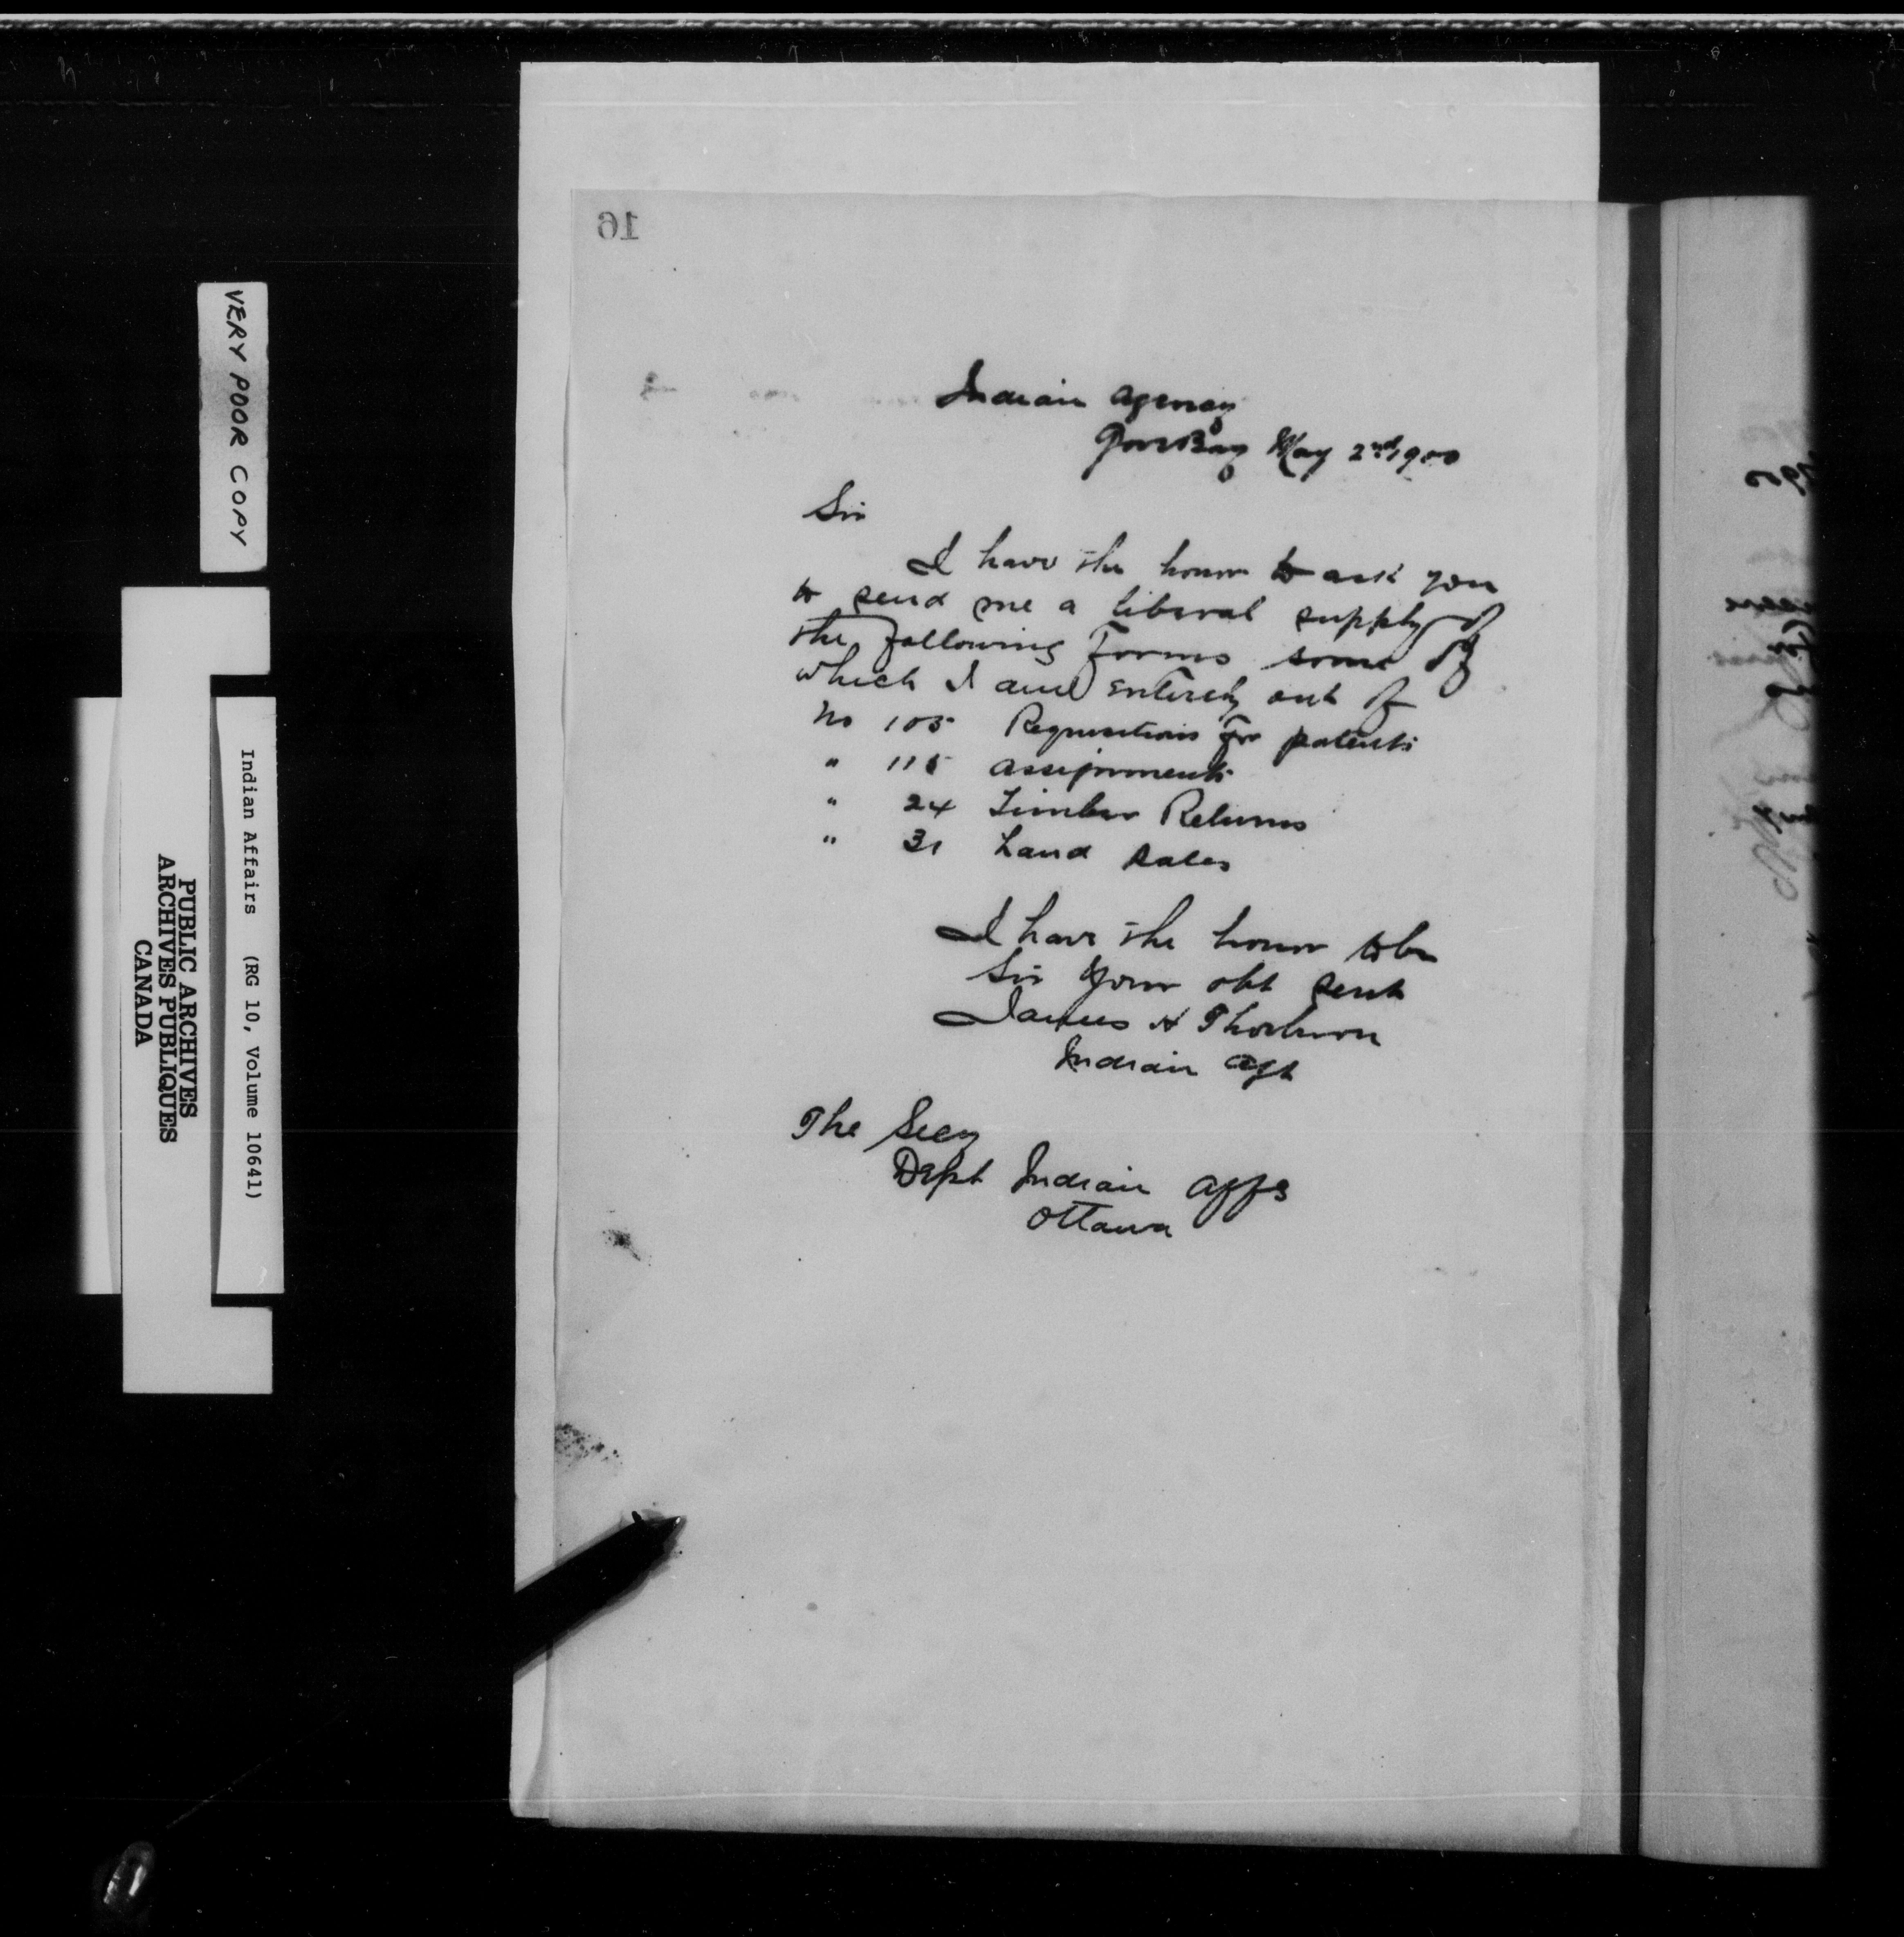 16
Indian Agency
Gore Bay May 2nd 1900
Sir
I have the honor to ask you
to send me a liberal supply of
the following Forms some of
which I am entirely out of
No 105 Requisitions for patents
" 115 assignments
" 24 Timber Returns
" 31 Land Sales
I have the honor to be
Sir Your obt servt
James H Thorburn
Indian Agt
The Secy
Dept Indian Affs
Ottawa
VERY POOR COPY
Indian Affairs (RG 10, Volume 10641)
PUBLIC ARCHIVES
ARCHIVES PUBLIQUES
CANADA